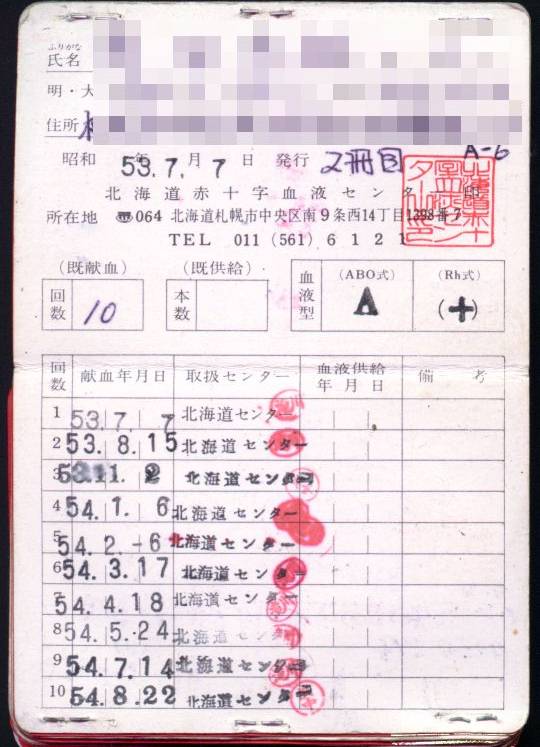 ふりがな
氏名
明・大
住所
昭和 53.7.7 年 月 日 発行 2冊目 A-6
北海道赤十字血液センター 印
所在地 〠064 北海道札幌市中央区南9条西14丁目1398番7
TEL 011 (561) 6121
(既献血) (既供給)
回数 10 本数 血液型 (ABO式) A (Rh式) (+)
回数 献血年月日 取扱センター 血液供給年月日 備考
1 53.7.7 北海道センター
2 53.8.15 北海道センター
3 53.11.2 北海道センター
4 54.1.6 北海道センター
5 54.2.-6 北海道センター
6 54.3.17 北海道センター
7 54.4.18 北海道センター
8 54.5.24 北海道センター
9 54.7.14 北海道センター
10 54.8.22 北海道センター